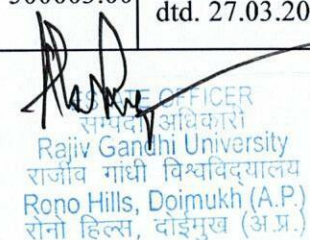 dtd. 27.03.20
ESTATE OFFICER
सम्पदा अधिकारी
Rajiv Gandhi University
राजीव गांधी विश्वविद्यालय
Rono Hills, Doimukh (A.P.)
रोनो हिल्स, दोईमुख (अ.प्र.)